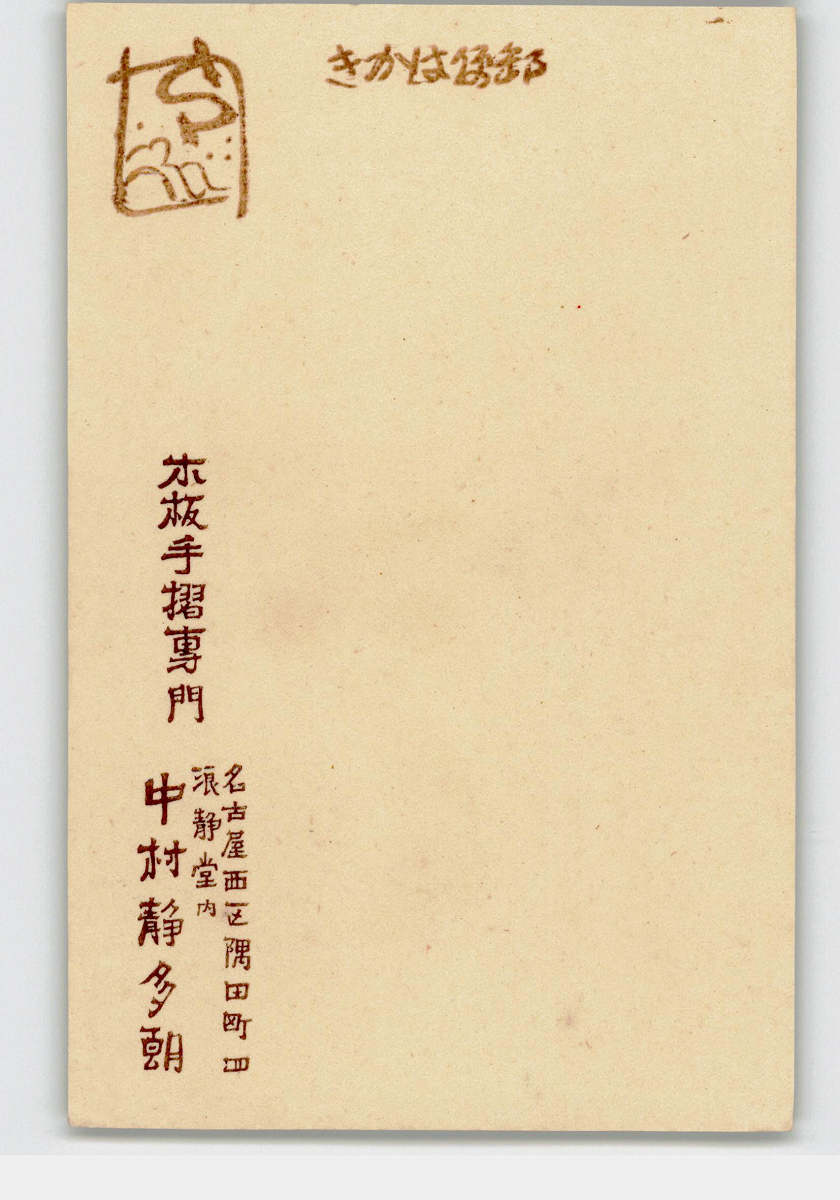 きかは便郵
木板手摺専門
名古屋西区隅田町四
浪静堂内
中村静多朝